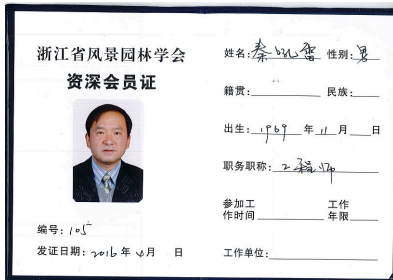 浙江省风景园林学会
资深会员证
编号：105
发证日期：2016 年 4 月 日
姓名：秦 雷 性别：男
籍贯： 民族：
出生：1969 年 11 月 日
职务职称：工程师
参加工作时间 工作年限
工作单位：